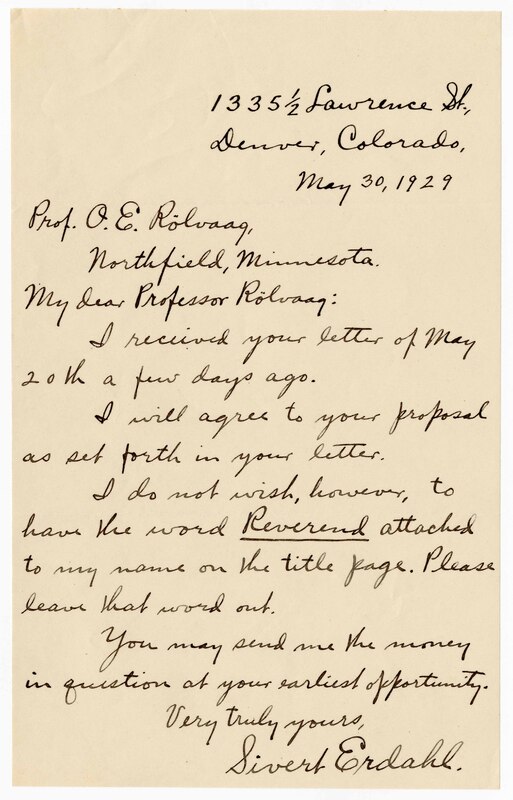 1335½ Lawrence St.,
Denver, Colorado,
May 30, 1929
Prof. O. E. Rölvaag,
Northfield, Minnesota.
My dear Professor Rölvaag:
I received your letter of May
20th a few days ago.
I will agree to your proposal
as set forth in your letter.
I do not wish, however, to
have the word Reverend attached
to my name on the title page. Please
leave that word out.
You may send me the money
in question at your earliest opportunity.
Very truly yours,
Sivert Erdahl.